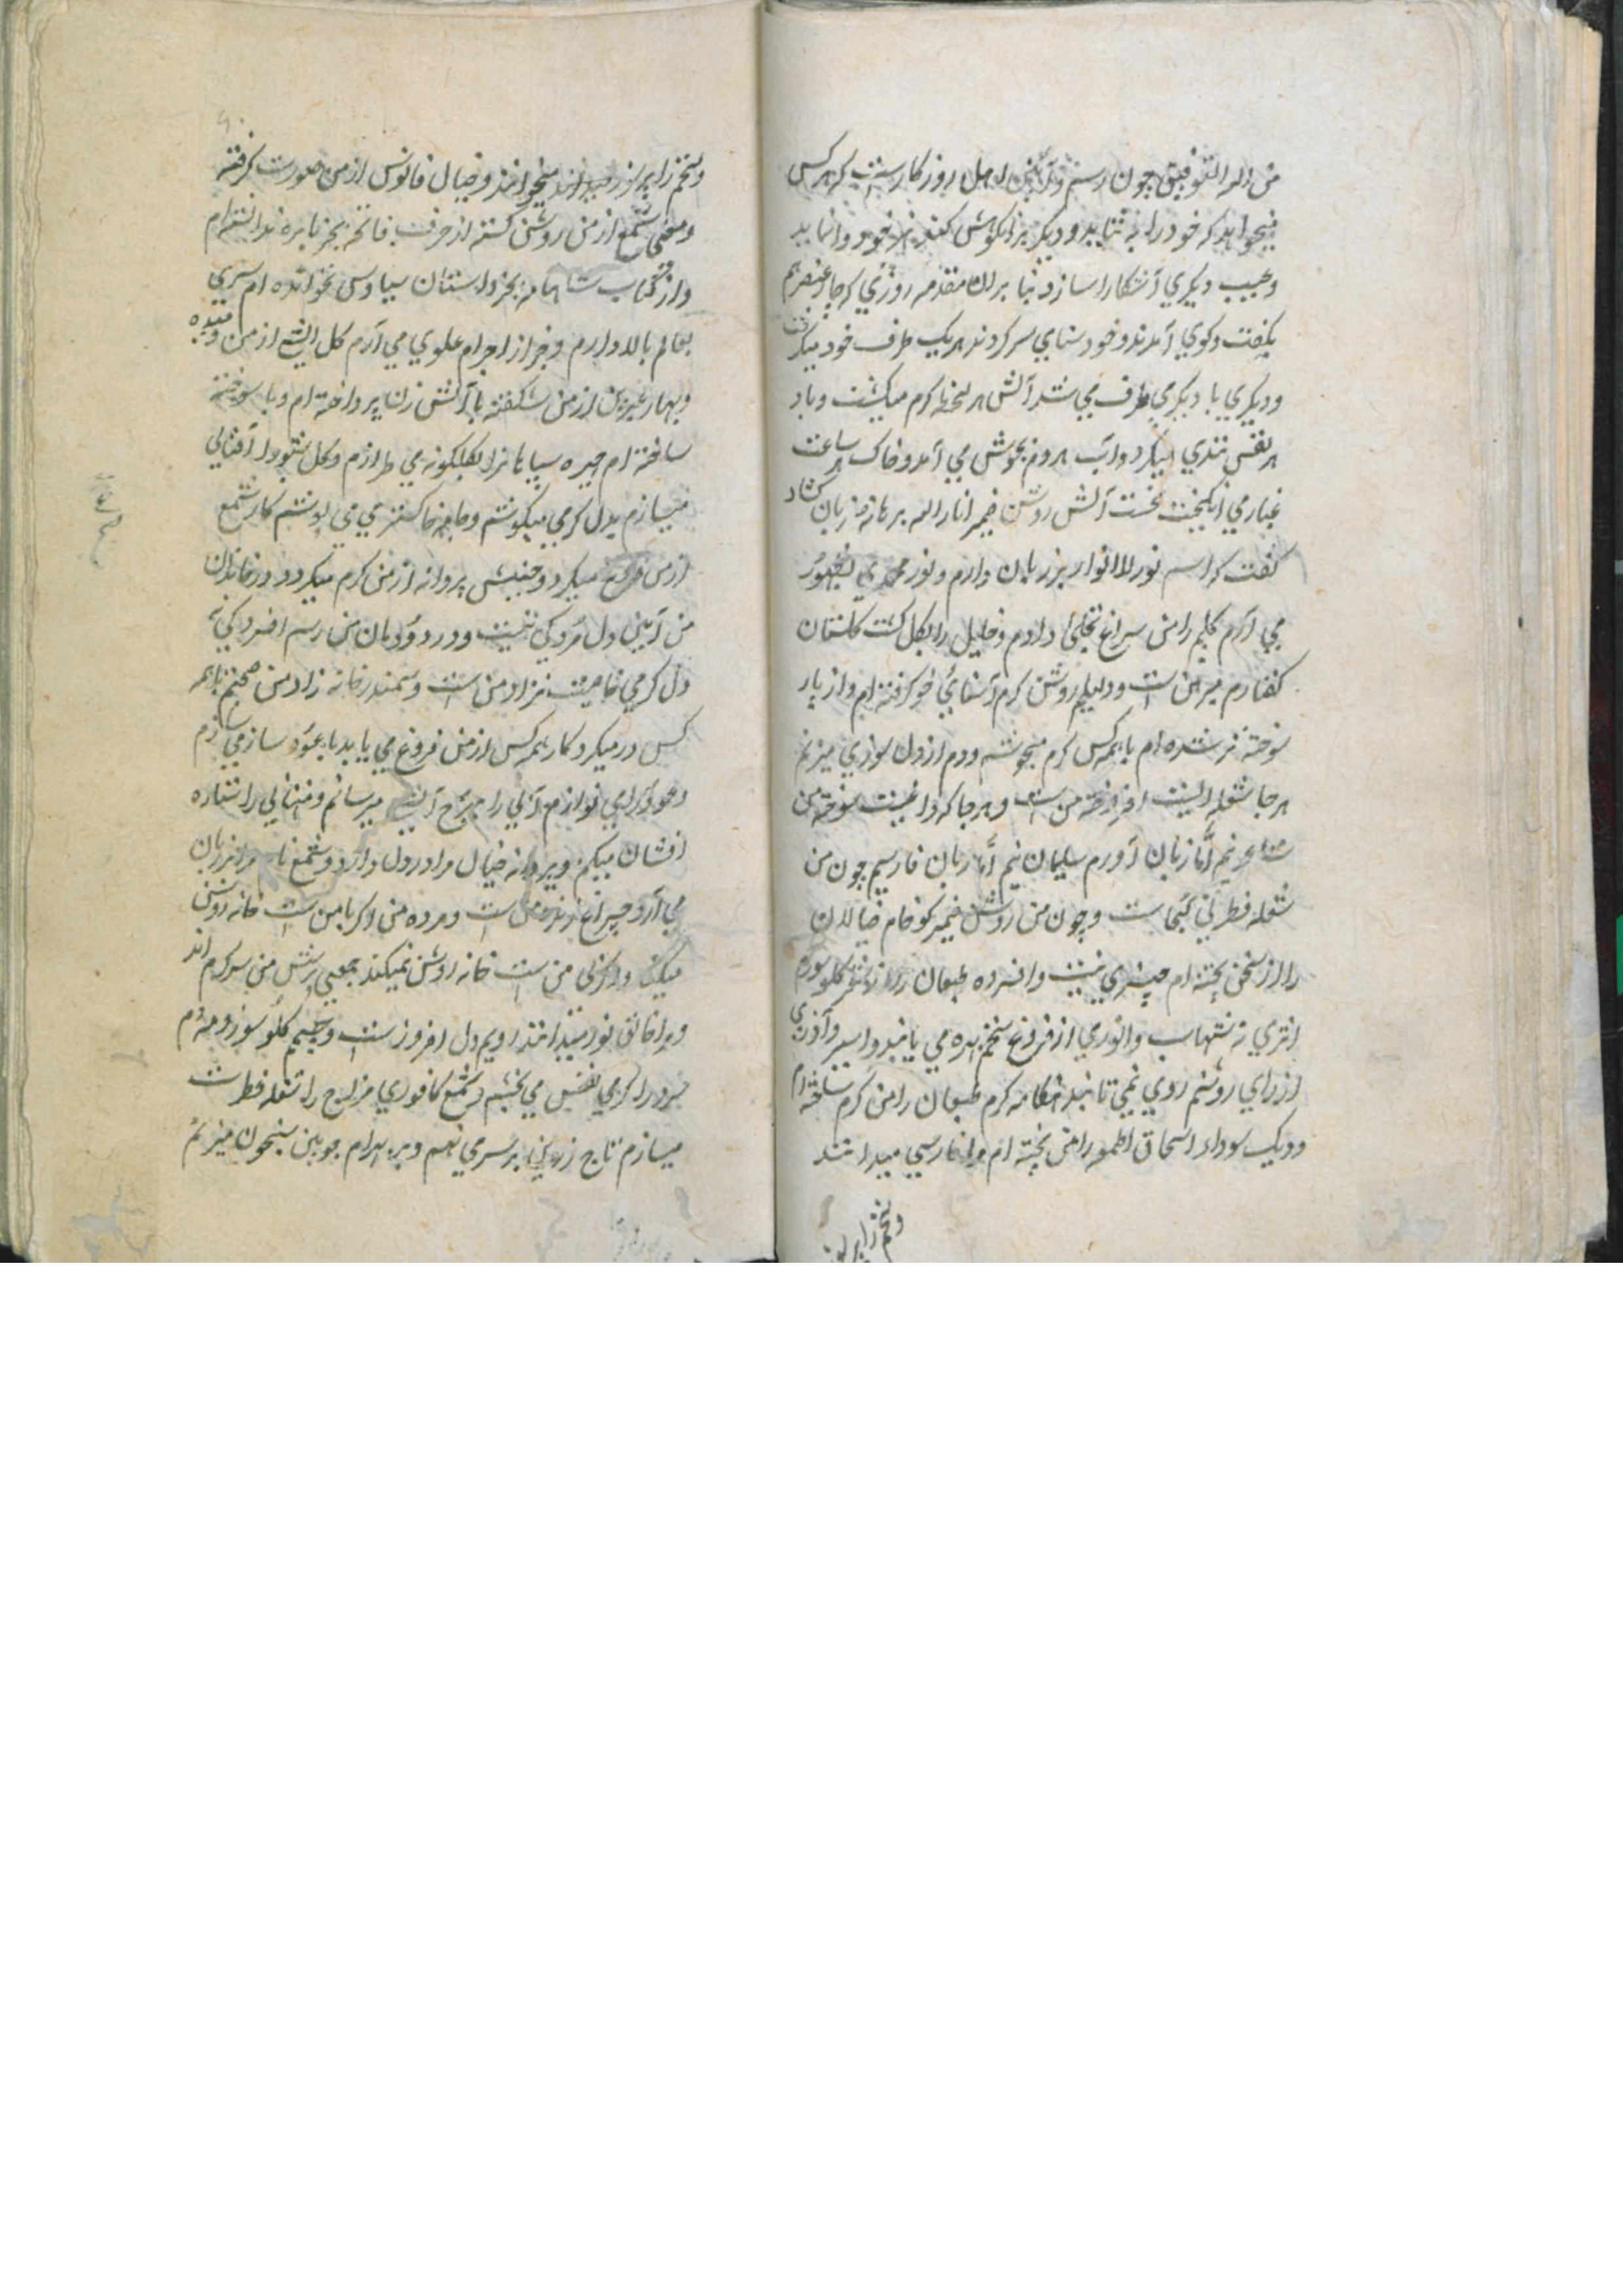 من الله التوفیق چون رسم و آئین اهل روزگارست که هر کس
میخواهد که خود را به ثناید و دیگر بزا نکوهش کند هنر خود وانماید
و عیب دیگری آشکارا سازد بنا بران مقدمه روزی که چار عنصر بهم
بگفت و گوی آمدند و خودستای سر کردند هر یک طرف خود میگرفت
و دیگری با دیگری طرف می شد آتش هر لحظه گرم میگشت و باد
هر نفس تندی میکرد و آب هر دم بجوش می آمد و خاک هر ساعت
غبار می انگیخت نخست آتش روشن ضمیر انار الله برهانه زبان کشاد
گفت که اسم نور الانوار بر زبان دارم و نور محمدی بظهور
می آرم کلیم را من سراغ تجلی دادم و خلیل را بگل گشت گلستان
گفتارم مبرهن است و دلیلم روشن گرم آشنائی خو گرفته ام و از یار
سوخته تر شده ام با همه کس گرم میجوشم و دم از دل سوزی میزنم
هر جا شعله ایست افروخته من است و هر جا که داغیست سوخته من
شاعر نیم اما زبان آورم سلیمان نیم اما زبان فارسیم چون من
شعله فطرتی کجاست و چون من روشن ضمیر کو خام خیالان
را از سخن پخته ام چیزی نیست و افسرده طبعان را از نشتر گلو سوزم
اثری نه شهاب و انوری از فروغ سخنم بهره می یابند و اسیر و آذری
از رای روشنم روی نمی تابند هنگامه گرم طبعان را من گرم ساخته ام
و دیک سوداء اسحاق اطعمه را من پخته ام مرا فارسی میدانند
و سخنم را پر نور
و سخنم را پر نور میدانند میخوانند و خیال فانوس از من صورت گرفته
و معنی شمع از من روشن گشته از حرف فاتحه بجز نایره ندانسته ام
و از کتاب شاهنامه بجز داستان سیاوس نخوانده ام سری
بعالم بالا دارم و خبر از اجرام علوی می آرم گل آتشی از من دمیده
و بهار عنبرین از من شگفته با آتش زنان پرداخته ام و با سوخته
ساخته ام چهره سیاهانرا بگلگونه می طرازم و گل شبو را آفتابی
میسازم بدل گرمی میکوشم و جامه خاکستری می پوشم کار شمع
از من فروغ میگیرد و جنبش پروانه از من گرم میگردد در خاندان
من آیین دل مردگی نیست و در دودمان من رسم افسردگی نه
دل گرمی خاصیت نژاد من است و سمندر خانه زاد من صحبتم با همه
کس در میگیرد کار همه کس از من فروغ می یابد با عود ساز می سازم
و عود را می نوازم آبی را بچرخ آتشی میرسانم و مهتابی را ستاره
افشان میکنم و پروانه خیال مرا در دل دارد و شمع نام مرا بر زبان
می آرد چراغ زنده من است و مرده من اگر با من است خانه روشن
میکند و اگر بی من است خانه روشن نمیکند جمعی پرستش من سرگرم اند
و مرا خالق نور میدانند رویم دل افروز است و جسم گلو سوز و مهرم
سرد را گرمی نفس می بخشم و شمع کافوری مزاج را شعله فطرت
میسازم تاج زرین بر سر می نهم و بر بهرام چوبین شبخون میزنم